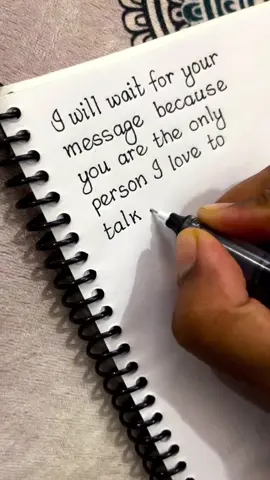 I will wait for your
message because
you are the only
person I love to
talk